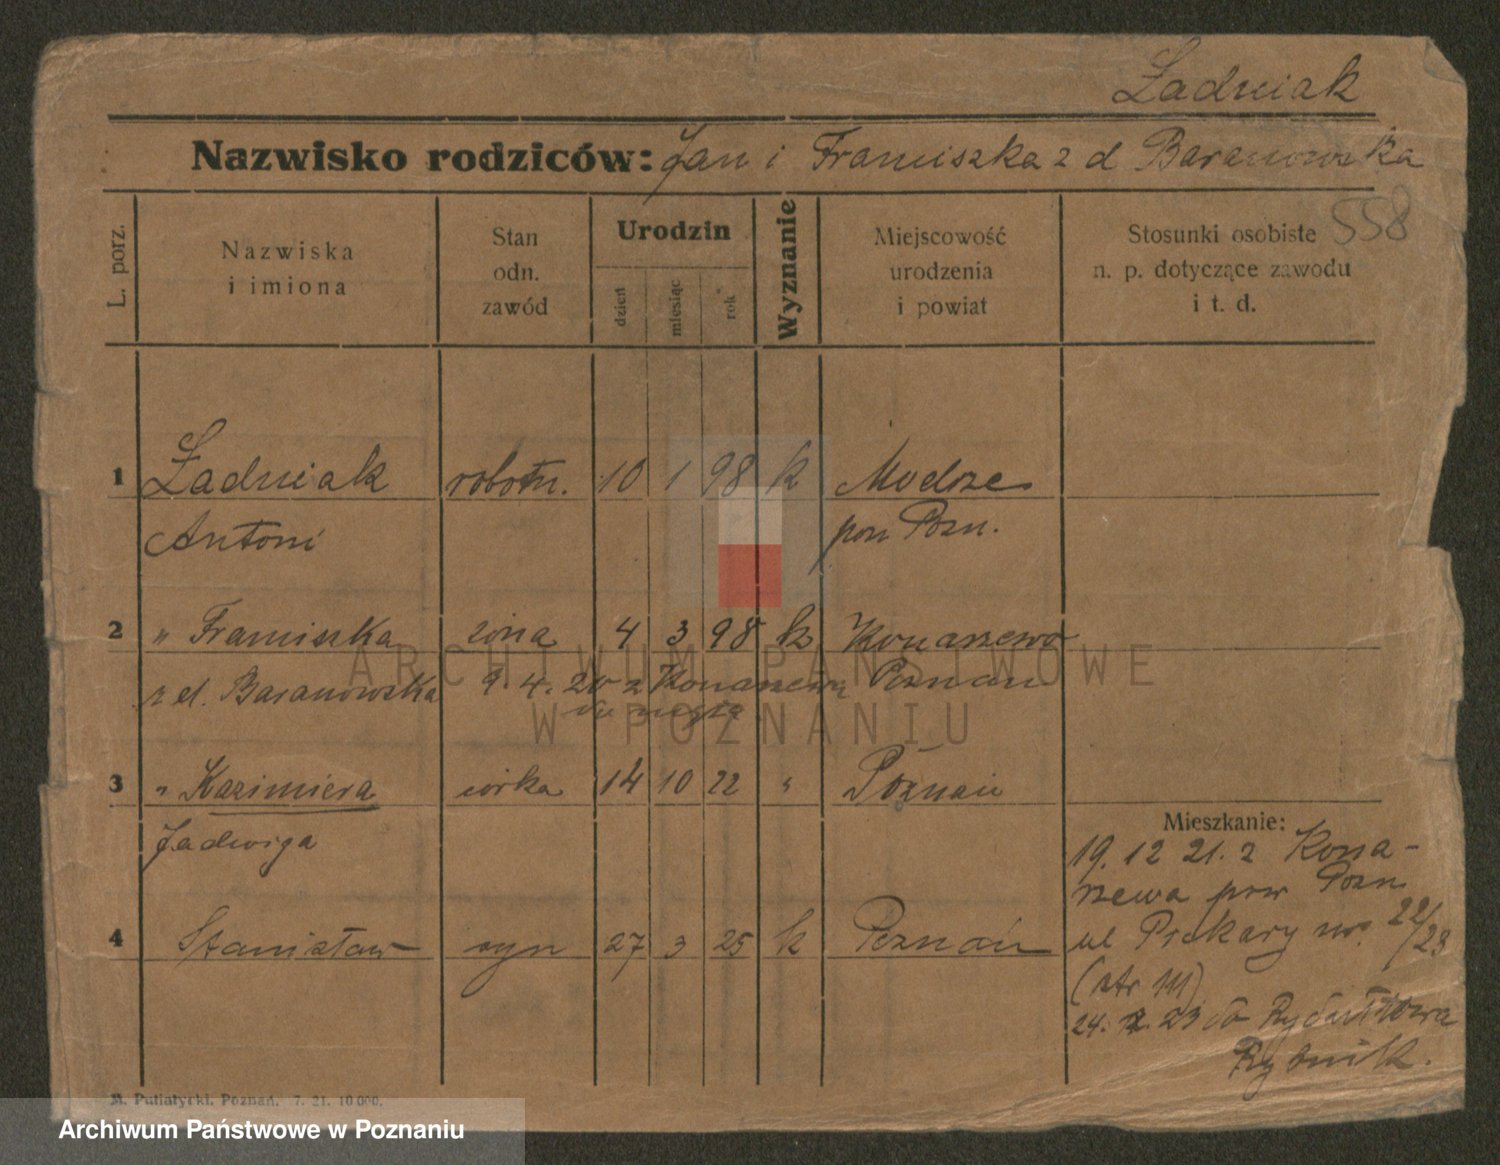 Ładniak
Nazwisko rodziców: Jan i Franciszka z d Baranowska
558
L. porz.
Nazwiska
i imiona
Stan
odn.
zawód
Urodzin
dzień
miesiąc
rok
Wyznanie
Miejscowość
urodzenia
i powiat
Stosunki osobiste
n. p. dotyczące zawodu
i t. d.
1 Ładniak robotn. 10 1 98 k Modrze
Antoni pow Pozn.
2 " Franciszka żona 4 3 98 k Konarzewo
z d. Baranowska 9. 4. 20 z Konarzewa Poznań
3 " Kazimiera córka 14 10 22 " Poznań
Jadwiga
4 Stanisław syn 27 3 25 k Poznań
Mieszkanie:
19. 12 21. z Kona-
rzewa pow Pozn
ul Piekary nr. 22/23
(str III)
24. 23 do
Rybnik.
M. Putiatycki, Poznań. 7. 21. 10 000.
ARCHIWUM PAŃSTWOWE
W POZNANIU
Archiwum Państwowe w Poznaniu